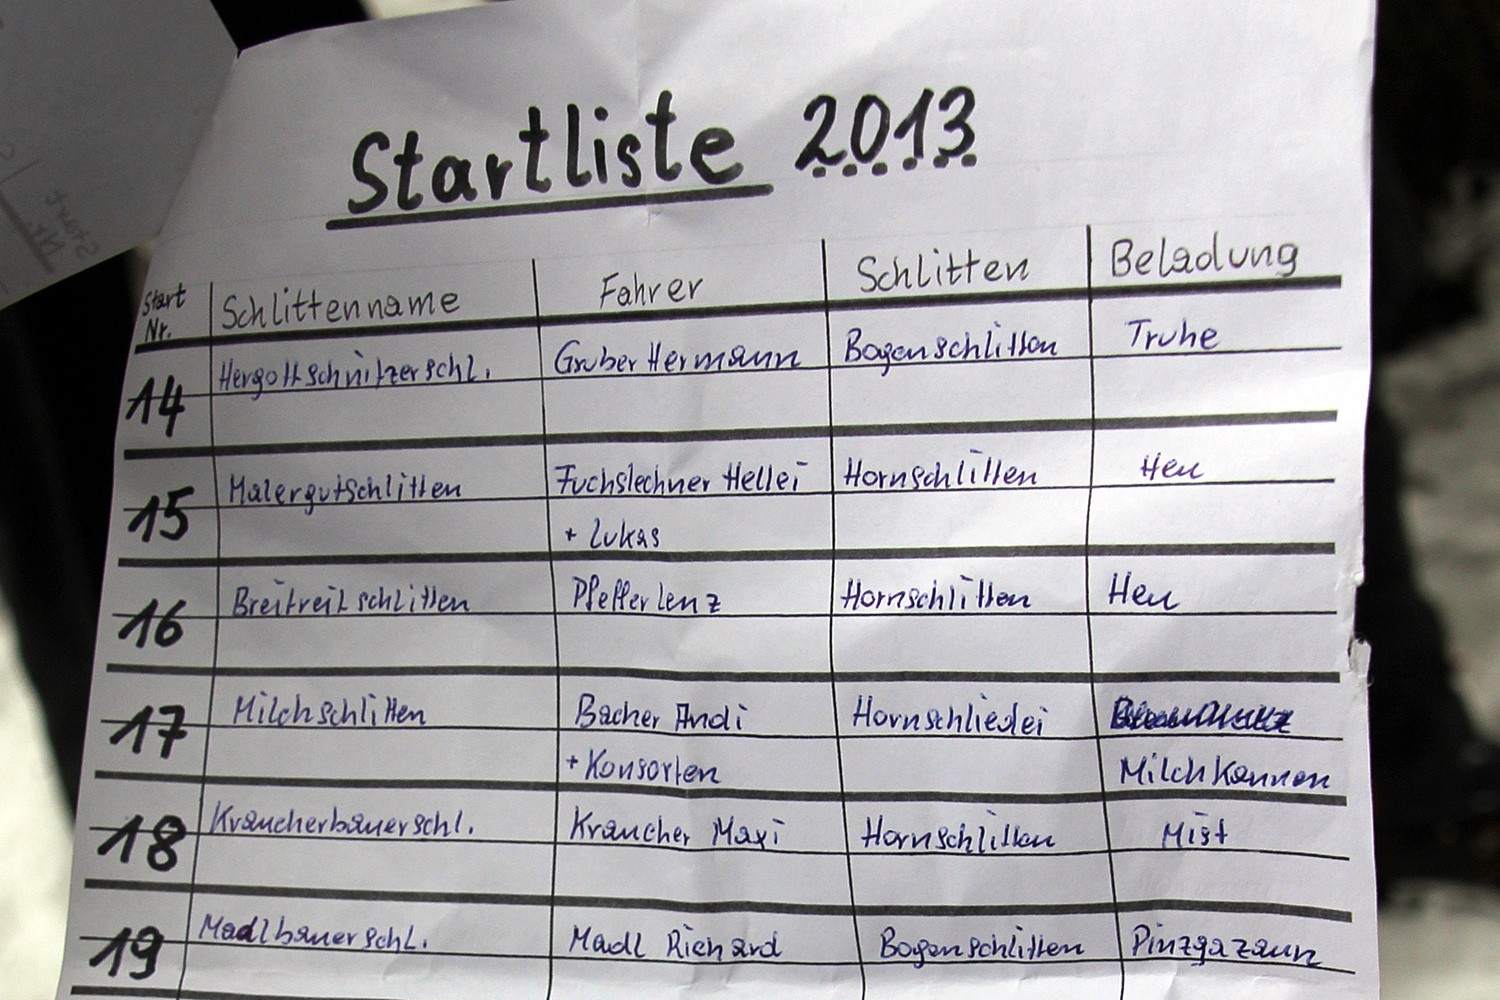 Startliste 2013
Start Nr. Schlittenname Fahrer Schlitten Beladung
14 Hergottschnitzerschl. Gruber Hermann Bogenschlitten Truhe
15 Malergutschlitten Fuchslechner Hellei Hornschlitten Heu
+ Lukas
16 Breitreitschlitten Pfefferlenz Hornschlitten Heu
17 Milchschlitten Bacher Andi Hornschliedei
+ Konsorten Milchkannen
18 Kraucherbauerschl. Kraucher Maxi Hornschlitten Mist
19 Madlbauerschl. Madl Richard Bogenschlitten Pinzgazaun
Start
Nr.